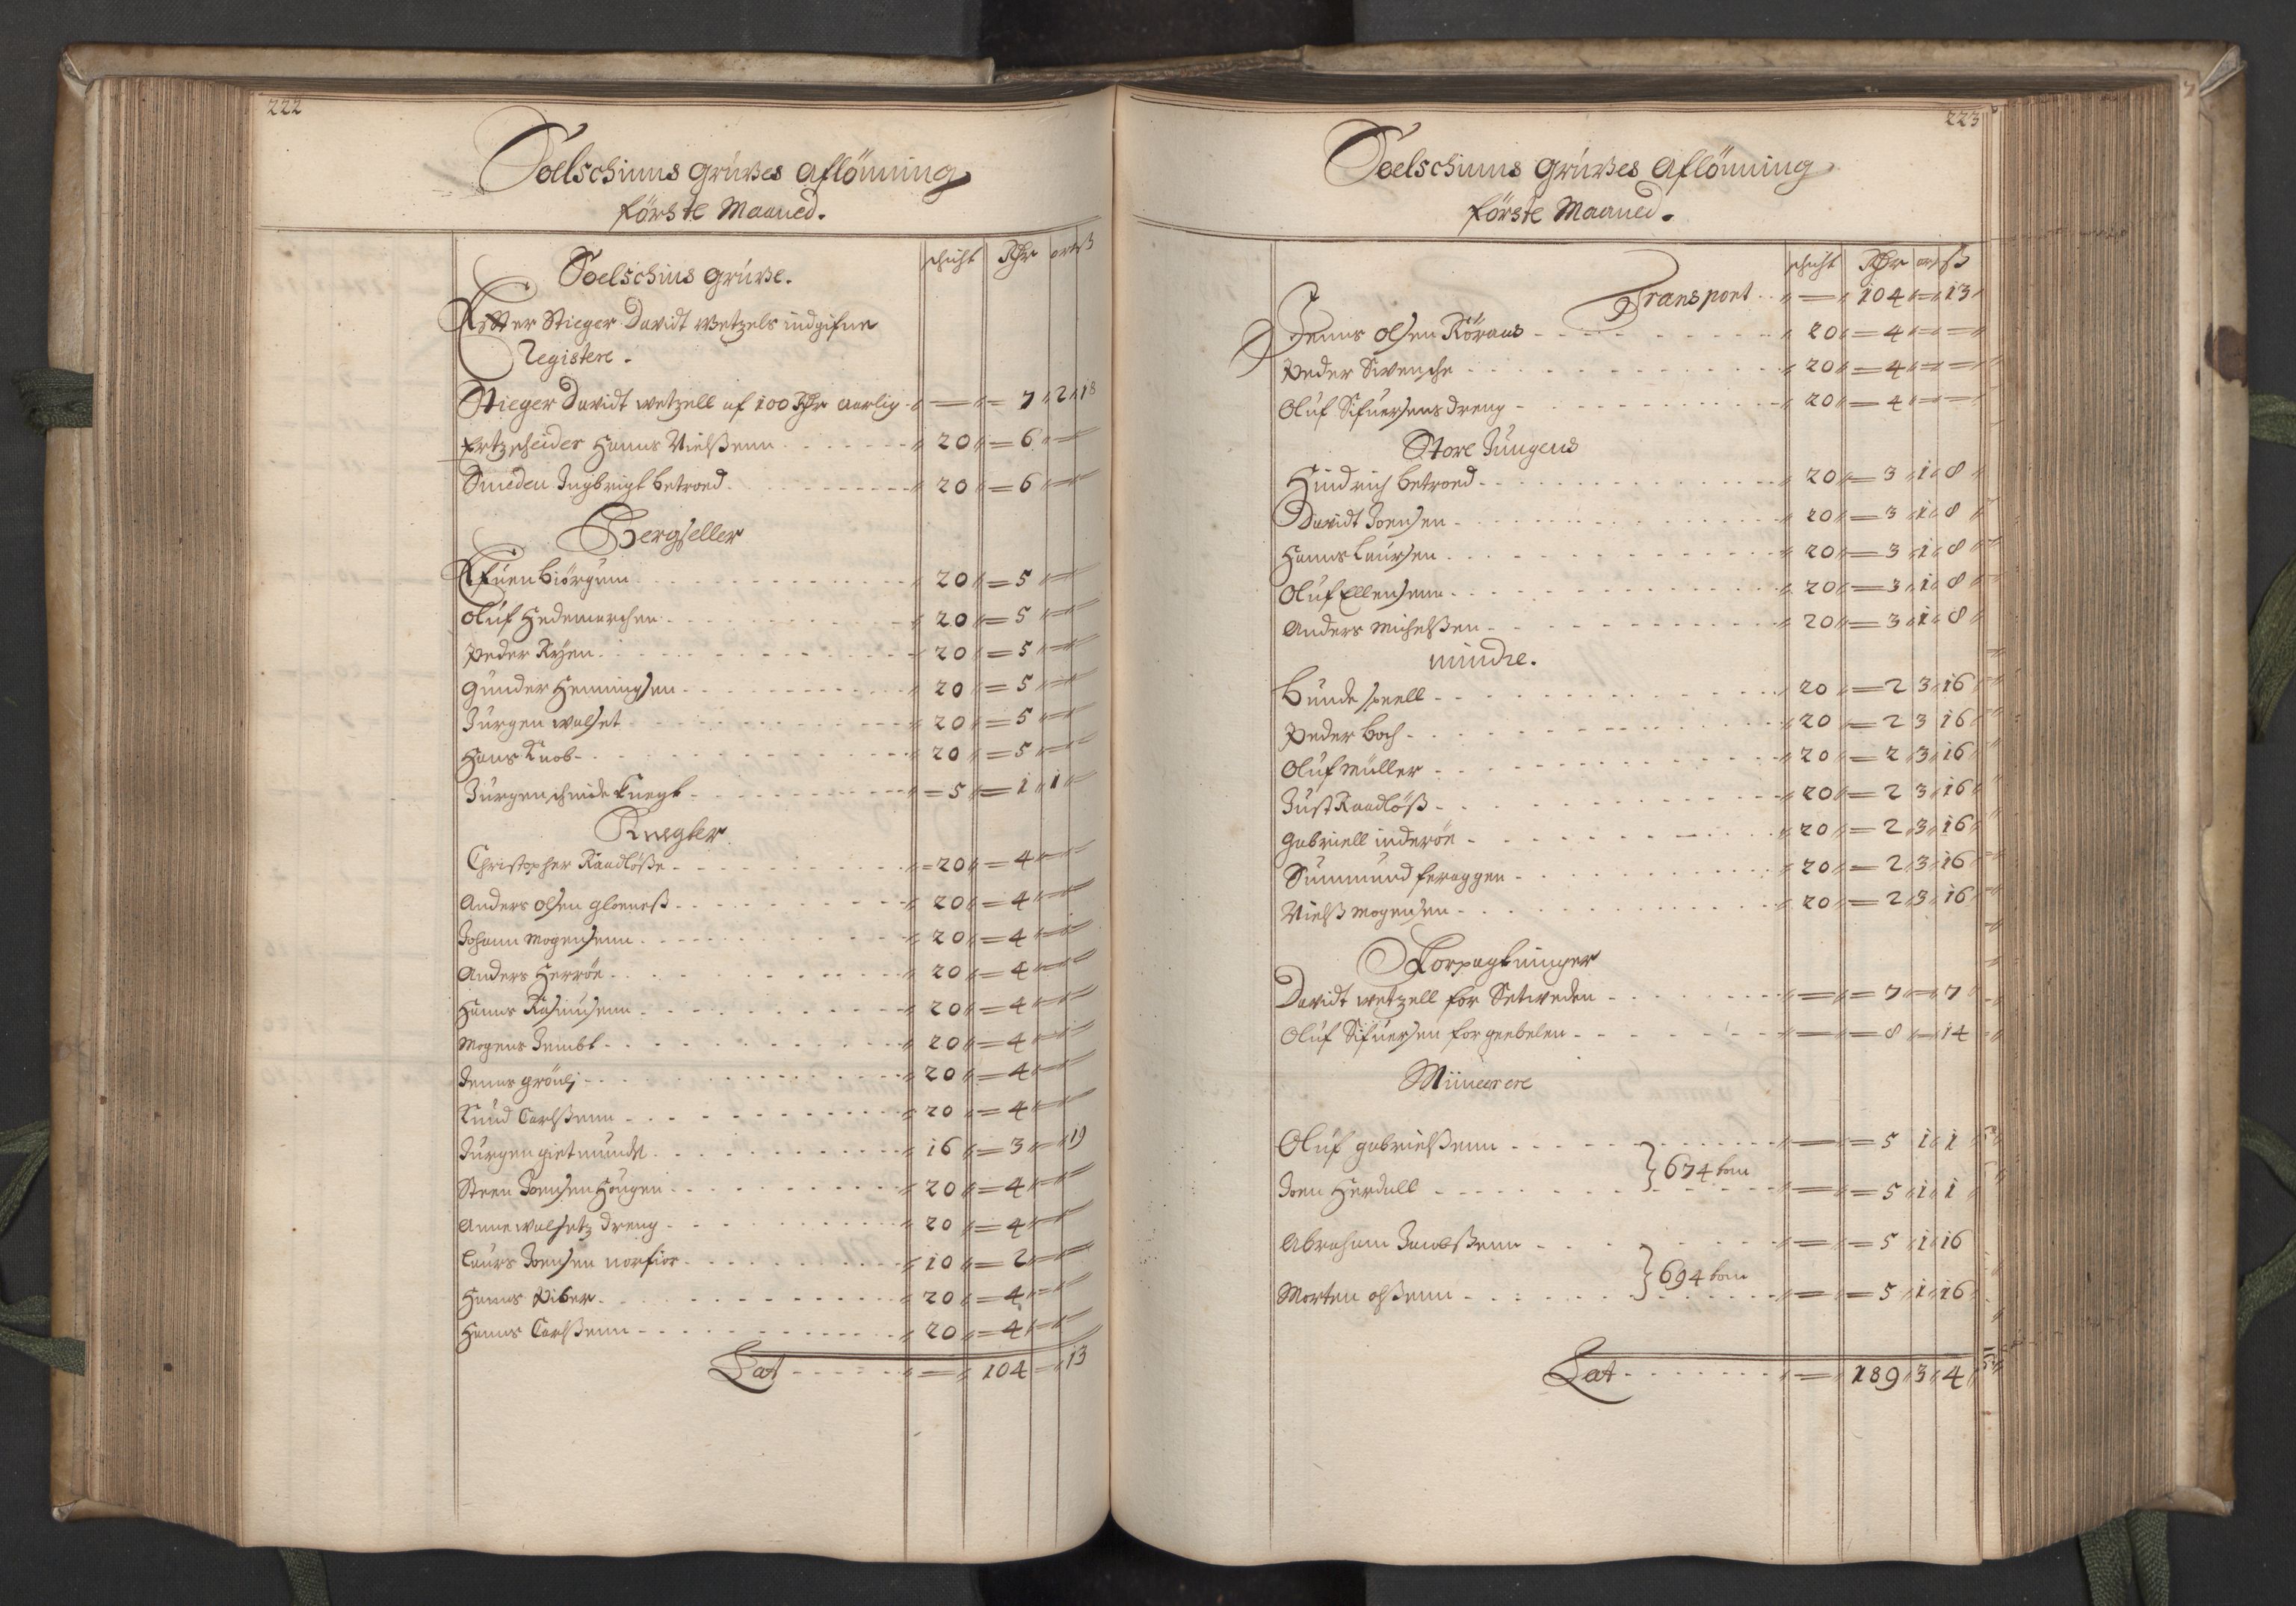 222
Soelschinns Grufves Aflönning
förste Maaned.
schicht Rdr ort ß
Soelschins Grufve.
Effter Stieger Davidt Wetzels indgifne
Registere.
Stieger Davidt Wetzell af 100 Rdr aarlig - 7 2 18
Ertzscheider Hanns Nielßenn 20 6
Smeden Ingbrigt Betroed 20 6
Bergseller
Efuen Biörgum 20 5
Oluf Hedemarchen 20 5
Peder Ryen 20 5
Gunder Henningsen 20 5
Jürgen Walset 20 5
Hans Knob 20 5
Jürgen schmideknegt 5 1 1
Knegter
Christopher Raadlöße 20 4
Anders Olsen Gloeneß 20 4
Johann Mogensenn 20 4
Anders Herröe 20 4
Hanns Rasmusenn 20 4
Mogens Jembt 20 4
Jenns Grönlj 20 4
Knud Carlßenn 20 4
Jürgen Gietmundt 16 3 19
Steen Joensen Hougen 20 4
Arne Walsetz dreng 20 4
Laurs Joensen Norfior 10 2
Hanns Piber 20 4
Hanns Carlßenn 20 4
Lat 104 13
223
Soelschinns Grufves Aflönning
förste Maaned.
schicht Rdr ort ß
Transport 104 13
Jenns Olsen Röraas 20 4
Peder Swensche 20 4
Oluf Sifuersens dreng 20 4
Store Jungens
Hindrich Betroed 20 3 1 8
Davidt Joensen 20 3 1 8
Hanns Laursen 20 3 1 8
Oluf Ellensenn 20 3 1 8
Anders Michelßen 20 3 1 8
mindre.
Bunde speell 20 2 3 16
Peder Boch 20 2 3 16
Oluf Müller 20 2 3 16
Just Raadlöß 20 2 3 16
Gabriell Inderöe 20 2 3 16
Summund Feraggen 20 2 3 16
Nielß Mogensen 20 2 3 16
Forpagtninger
Davidt Wetzell for Setweden 7 7
Oluf Sifuersen for geebelen 8 14
Miineerere
Oluf Gabrielßenn 5 1 1
} 674 ton
Joen Herdall 5 1 1
Abraham Jacobßenn 5 1 16
} 694 ton
Morten Olßenn 5 1 16
Lat 189 3 4